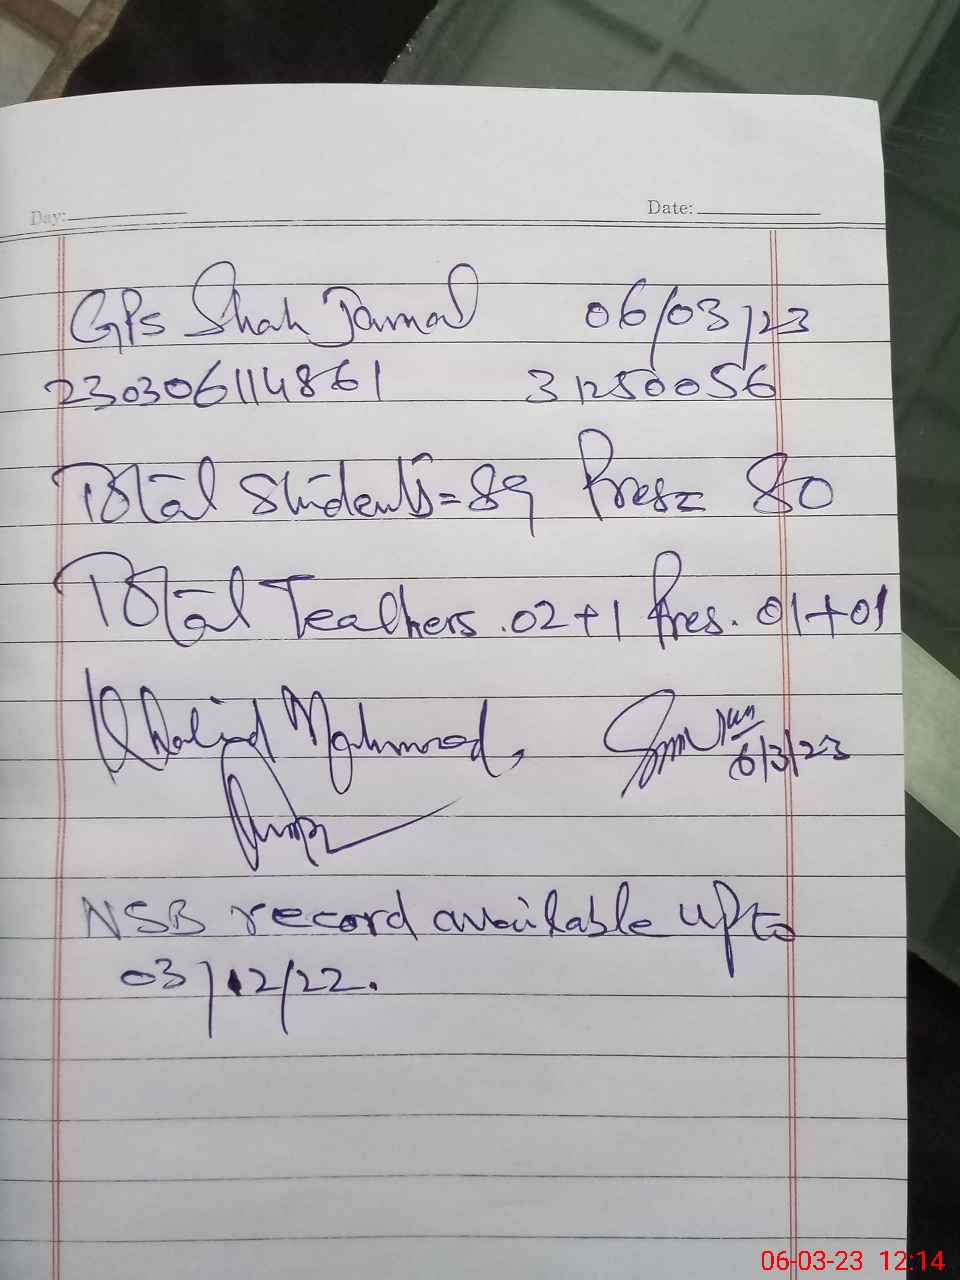 Day: Date:
GPS Shah Jamal 06/03/23
230306114861 31250056
Total Students = 89 Pres = 80
Total Teachers. 02+1 Pres. 01+01
Khalid Mahmood,
6/3/23
NSB record available upto
03/12/22.
06-03-23 12:14